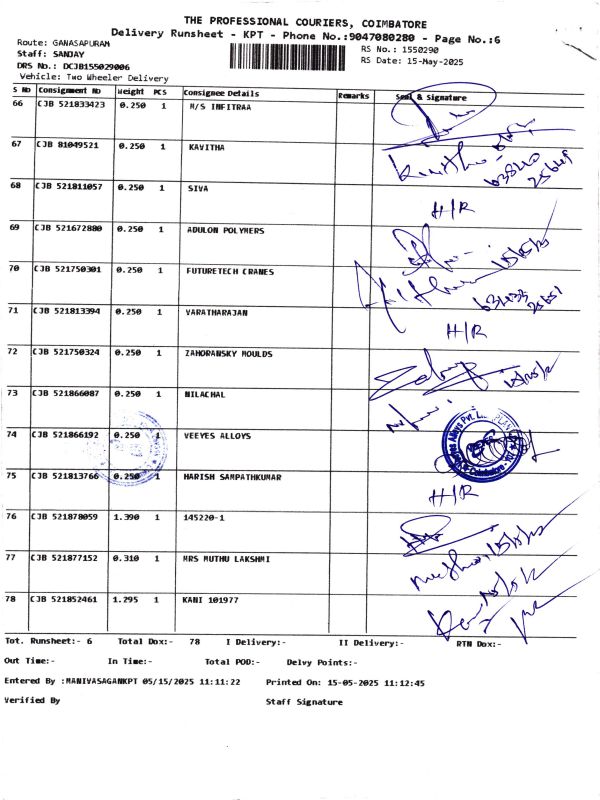 THE PROFESSIONAL COURIERS, COIMBATORE
Delivery Runsheet - KPT - Phone No.:9047080280 - Page No.:6
Route: GANASAPURAM
RS No.: 1550290
Staff: SANJAY
RS Date: 15-May-2025
DRS No.: DCJB155029006
Vehicle: Two Wheeler Delivery
S No Consignment No Weight PCS Consignee Details Remarks Seal & Signature
66 CJB 521833423 0.250 1 M/S INFITRAA
67 CJB 81049521 0.250 1 KAVITHA Kavitha
68 CJB 521811057 0.250 1 SIVA H/R
69 CJB 521672880 0.250 1 ADULON POLYMERS
70 CJB 521750301 0.250 1 FUTURETECH CRANES
71 CJB 521813394 0.250 1 VARATHARAJAN H/R
72 CJB 521750324 0.250 1 ZAHORANSKY MOULDS
73 CJB 521866087 0.250 1 NILACHAL
74 CJB 521866192 0.250 1 VEEYES ALLOYS
75 CJB 521813766 0.250 1 HARISH SAMPATHKUMAR H/R
76 CJB 521878059 1.390 1 145220-1
77 CJB 521877152 0.310 1 MRS MUTHU LAKSHMI
78 CJB 521852461 1.295 1 KANI 101977
Tot. Runsheet:- 6 Total Dox:- 78 I Delivery:- II Delivery:- RTN Dox:-
Out Time:- In Time:- Total POD:- Delvy Points:-
Entered By :MANIVASAGANKPT 05/15/2025 11:11:22 Printed On: 15-05-2025 11:12:45
Verified By Staff Signature